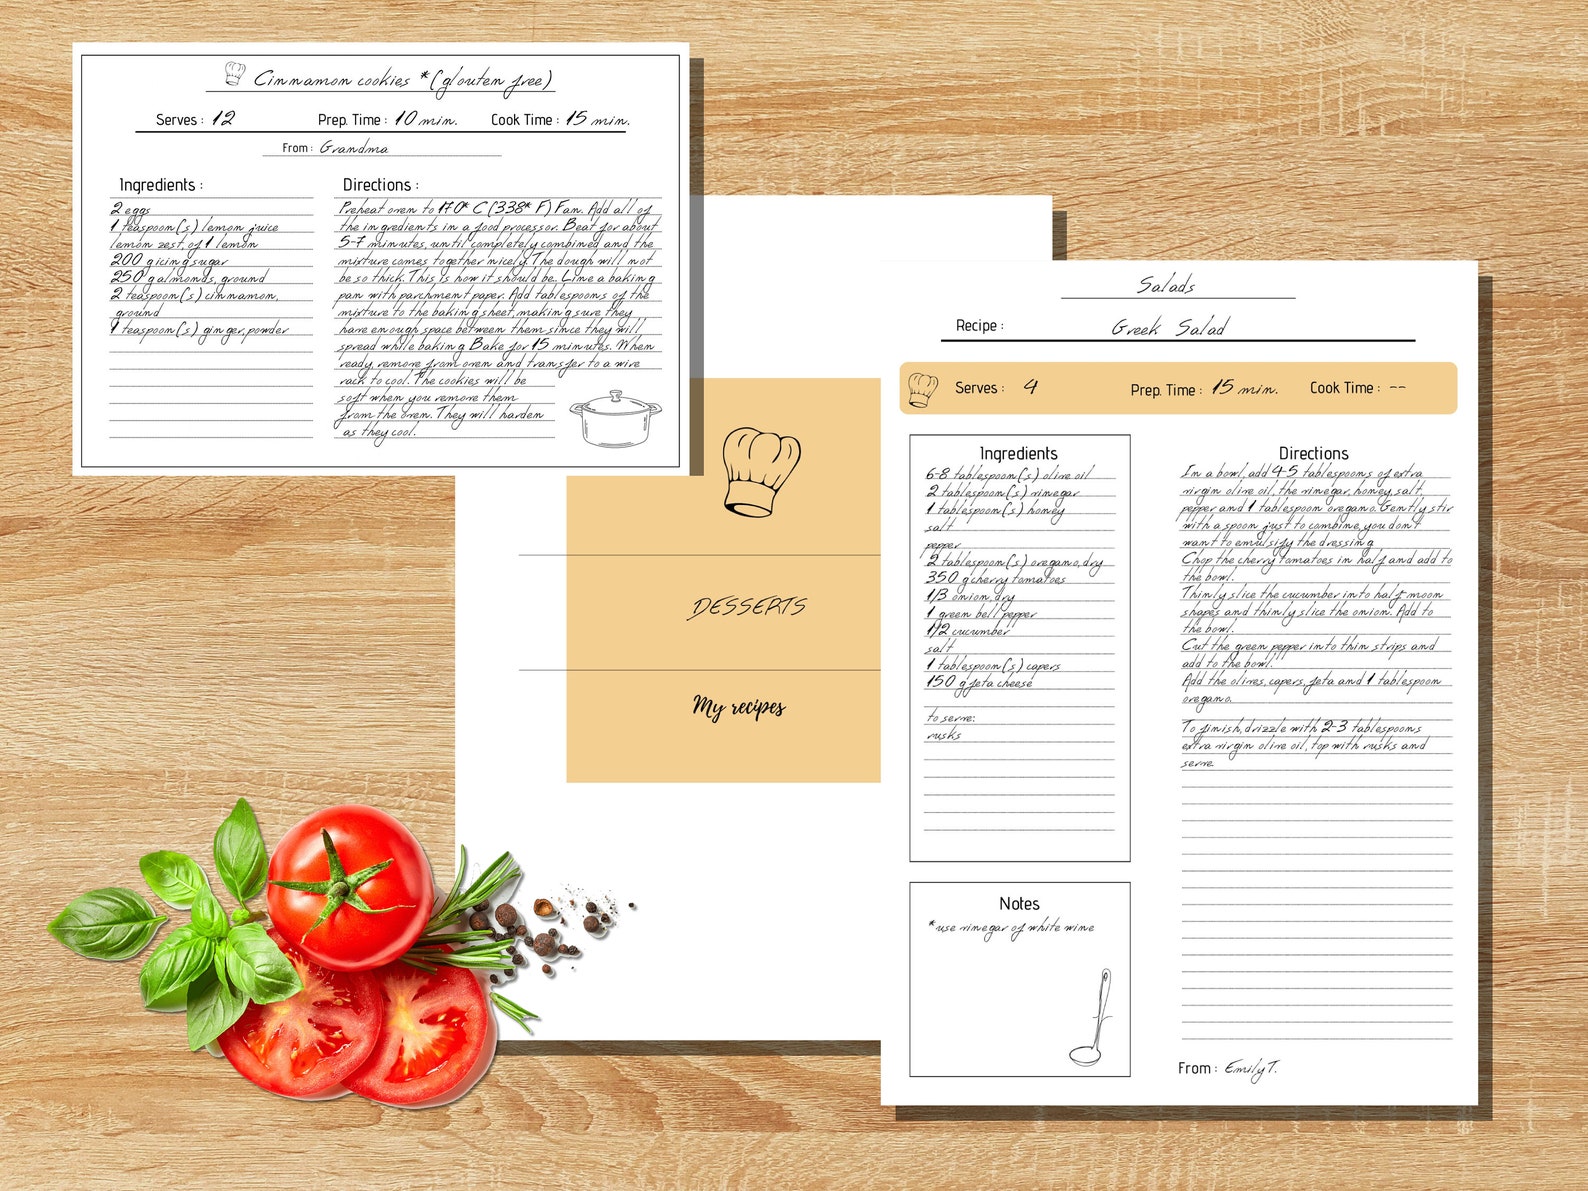 Cinnamon cookies *(glouten free)
Serves : 12 Prep. Time : 10 min. Cook Time : 15 min.
From : Grandma
Ingredients :
2 eggs
1 teaspoon(s) lemon juice
lemon zest, of 1 lemon
200 g icing sugar
250 g almonds, ground
2 teaspoon(s) cinnamon,
ground
1 teaspoon(s) ginger, powder
Directions :
Preheat oven to 170* C (338* F) Fan. Add all of
the ingredients in a food processor. Beat for about
5-7 minutes, until completely combined and the
mixture comes together nicely. The dough will not
be so thick. This is how it should be. Line a baking
pan with parchment paper. Add tablespoons of the
mixture to the baking sheet, making sure they
have enough space between them since they will
spread while baking. Bake for 15 minutes. When
ready, remove from oven and transfer to a wire
rack to cool. The cookies will be
soft when you remove them
from the oven. They will harden
as they cool.
DESSERTS
My recipes
Salads
Recipe : Greek Salad
Serves : 4 Prep. Time : 15 min. Cook Time : --
Ingredients
6-8 tablespoon(s) olive oil
2 tablespoon(s) vinegar
1 tablespoon(s) honey
salt
pepper
2 tablespoon(s) oregano, dry
350 g cherry tomatoes
1/3 onion, dry
1 green bell pepper
1/2 cucumber
salt
1 tablespoon(s) capers
150 g feta cheese
to serve:
rusks
Notes
*use vinegar of white wine
Directions
In a bowl, add 4-5 tablespoons of extra
virgin olive oil, the vinegar, honey, salt,
pepper and 1 tablespoon oregano. Gently stir
with a spoon just to combine, you don't
want to emulsify the dressing
Chop the cherry tomatoes in half and add to
the bowl.
Thinly slice the cucumber into half-moon
shapes and thinly slice the onion. Add to
the bowl.
Cut the green pepper into thin strips and
add to the bowl.
Add the olives, capers, feta and 1 tablespoon
oregano.
To finish, drizzle with 2-3 tablespoons
extra virgin olive oil, top with rusks and
serve.
From : Emily T.